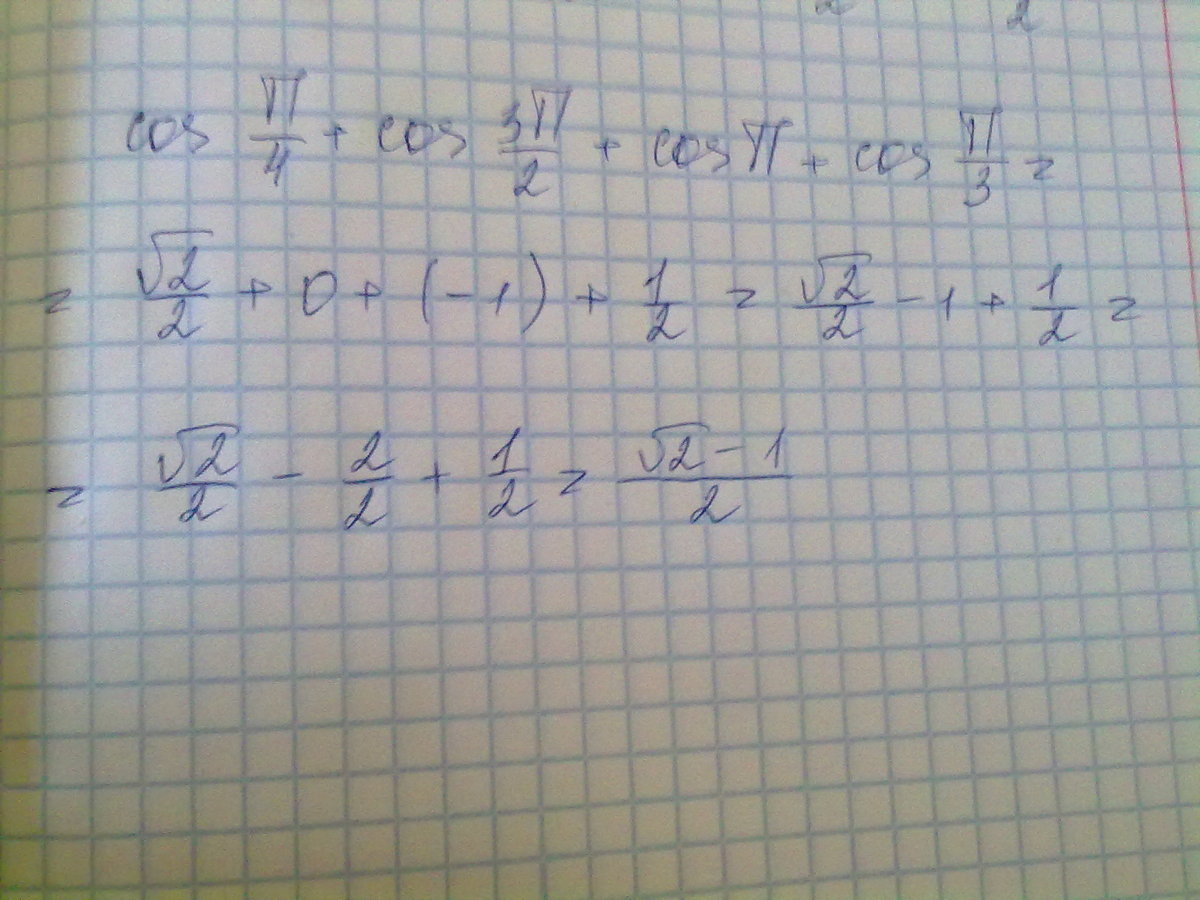 cos π/4 + cos 3π/2 + cos π + cos π/3 =
= √2/2 + 0 + (-1) + 1/2 = √2/2 - 1 + 1/2 =
= √2/2 - 2/2 + 1/2 = (√2 - 1)/2